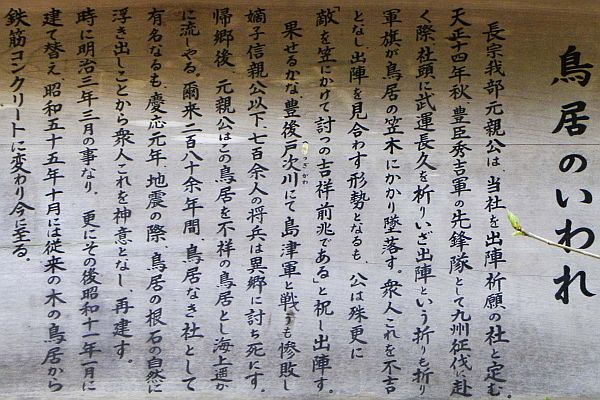 鳥居のいわれ
長宗我部元親公は、当社を出陣祈願の社と定む。
天正十四年秋、豊臣秀吉軍の先鋒隊として九州征伐に赴
く際、社頭に武運長久を祈りいざ出陣という折りも折り
軍旗が鳥居の笠木にかかり墜落す。衆人これを不吉
となし、出陣を見合わす形勢となるも、公は殊更に
「敵を笠にかけて討つの吉祥前兆である」と祝し出陣す。
果せるかな、豊後戸次川にて島津軍と戦うも惨敗し
つぎがわ
嫡子信親公以下七百余人の将兵は異郷に討ち死にす。
帰郷後、元親公はこの鳥居を不祥の鳥居とし海上遥か
に流しやる。爾来二百八十余年間、鳥居なき社として
有名なるも、慶応元年、地震の際、鳥居の根石の自然に
浮き出しことから衆人これを神意となし、再建す。
時に明治三年三月の事なり、更にその後昭和十一年一月に
建て替え、昭和五十五年十月には従来の木の鳥居から
鉄筋コンクリートに変わり今に至る。